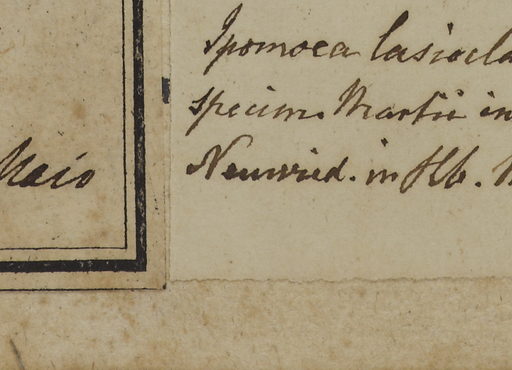 Ipomoea lasiocla
specim. Martii in
Neuwied. in Hb.
Maio